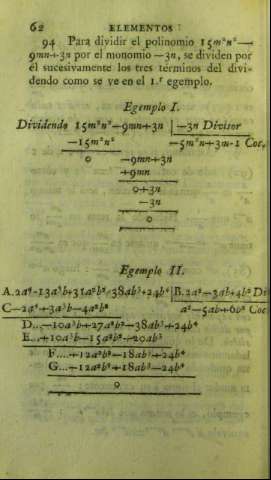 62 ELEMENTOS
94 Para dividir el polinomio 15m²n²—
9mn+3n por el monomio —3n, se dividen por
él sucesivamente los tres términos del divi-
dendo como se ve en el 1.ʳ egemplo.
Egemplo I.
Dividendo 15m²n²—9mn+3n |—3n Divisor
—15m²n² —5m²n+3m-1 Coc.
0 —9mn+3n
+9mn
0+3n
—3n
0
Egemplo II.
A.2a⁴-13a³b+31a²b²-38ab³+24b⁴|B.2a²—3ab+4b² Di
C—2a⁴+3a³b—4a²b² a²—5ab+6b² Coc
D...—10a³b+27a²b²—38ab³+24b⁴
E...+10a³b—15a²b²+20ab³
F....+12a²b²—18ab³+24b⁴
G...—12a²b²+18ab³—24b⁴
0